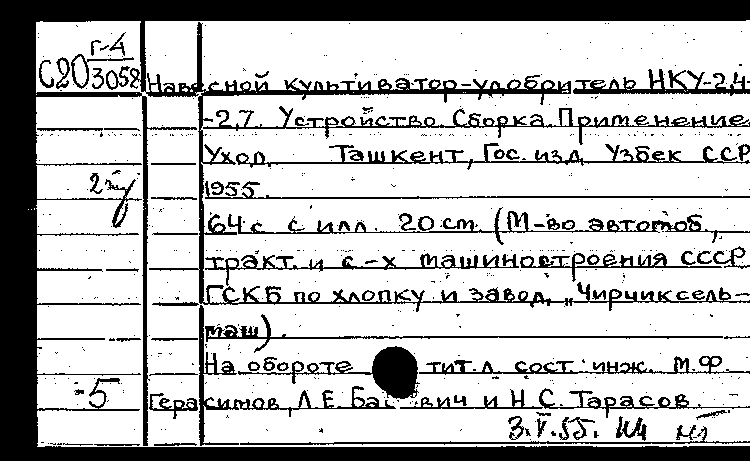 Г-4
С20 3058
Навесной культиватор-удобритель НКУ-2,4-
-2,7. Устройство. Сборка. Применение.
Уход. Ташкент, Гос. изд. Узбек ССР
1955.
64 с. с илл. 20 см. (М-во автомоб.,
тракт. и с.-х машиностроения СССР
ГСКБ по хлопку и завод „Чирчиксель-
маш).
На обороте тит. л. сост.: инж. М.Ф.
-5 Герасимов, Л.Е. и Н.С. Тарасов.
3.V.55.